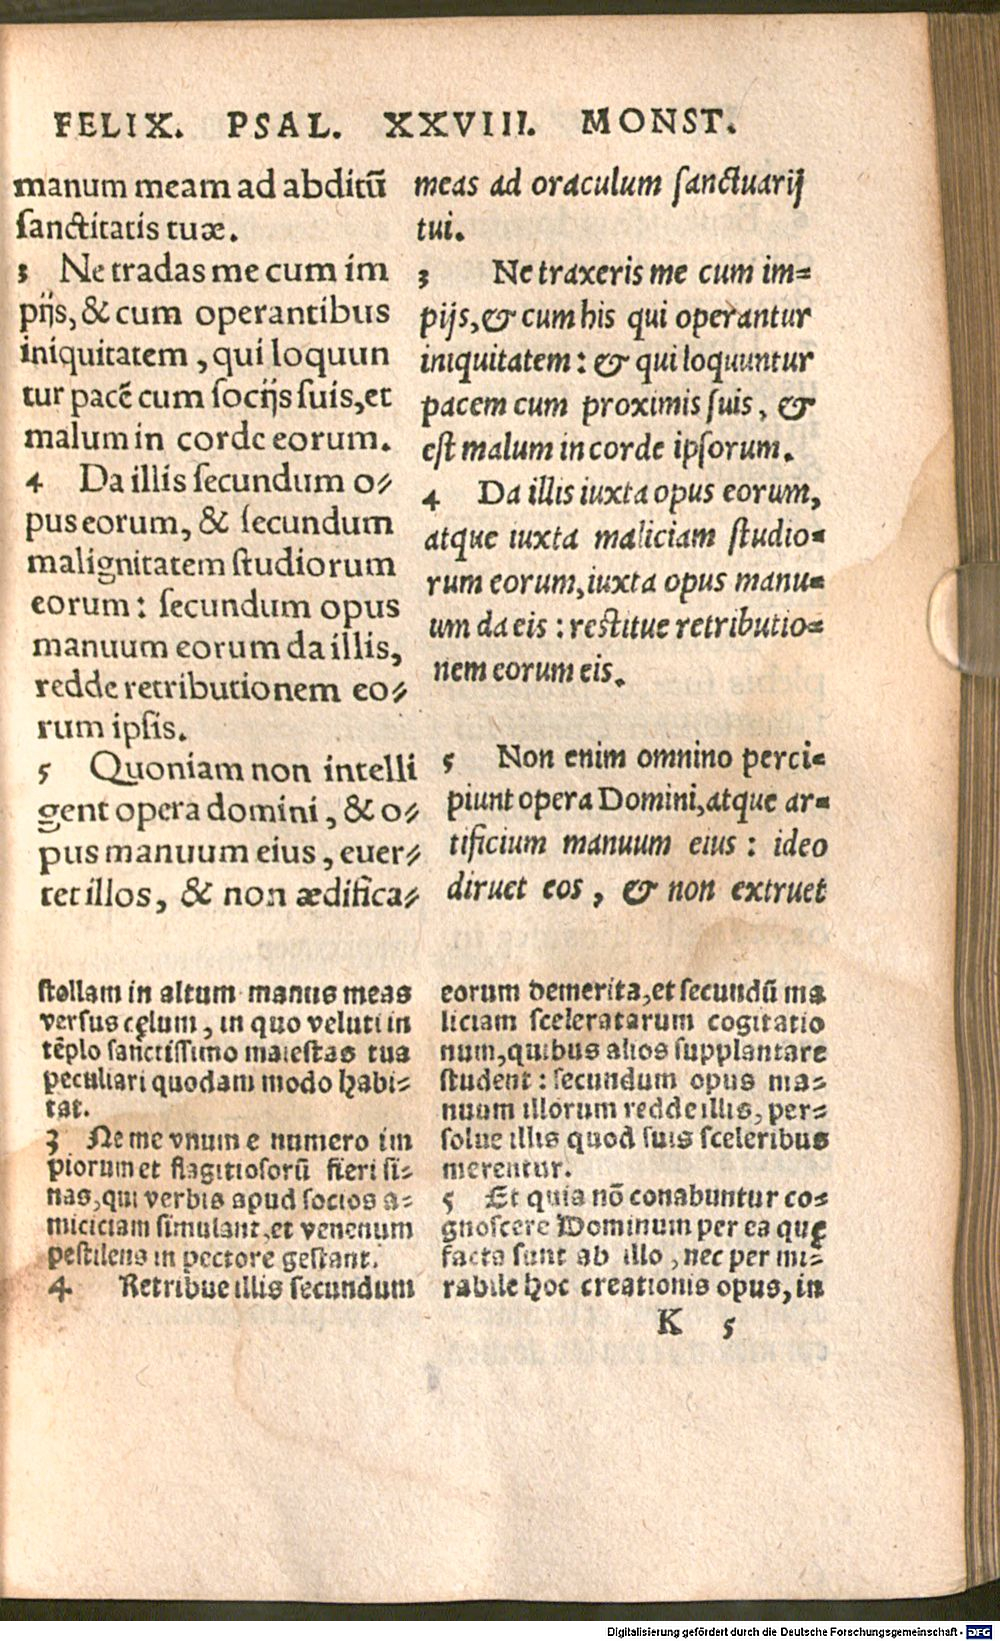 FELIX. PSAL. XXVIII. MONST.
manum meam ad abditū
sanctitatis tuæ.
3 Ne tradas me cum im
pijs, & cum operantibus
iniquitatem, qui loquun
tur pacē cum socijs suis, et
malum in corde eorum.
4 Da illis secundum o⸗
pus eorum, & secundum
malignitatem studiorum
eorum: secundum opus
manuum eorum da illis,
redde retributionem eo⸗
rum ipsis.
5 Quoniam non intelli
gent opera domini, & o⸗
pus manuum eius, euer⸗
tet illos, & non ædifica⸗
meas ad oraculum sanctuarij
tui.
3 Ne traxeris me cum im⸗
pijs, & cum his qui operantur
iniquitatem: & qui loquuntur
pacem cum proximis suis, &
est malum in corde ipsorum.
4 Da illis iuxta opus eorum,
atque iuxta maliciam studio⸗
rum eorum, iuxta opus manu⸗
um da eis: restitue retributio⸗
nem eorum eis.
5 Non enim omnino perci⸗
piunt opera Domini, atque ar⸗
tificium manuum eius: ideo
diruet eos, & non extruet
stollam in altum manus meas
versus cęlum, in quo veluti in
tēplo sanctissimo maiestas tua
peculiari quodam modo habi⸗
tat.
3 Ne me vnum e numero im
piorum et flagitiosorū fieri si⸗
nas, qui verbis apud socios a⸗
miciciam simulant, et venenum
pestilens in pectore gestant.
4 Retribue illis secundum
eorum demerita, et secundū ma
liciam sceleratarum cogitatio
num, quibus alios supplantare
student: secundum opus ma⸗
nuum illorum redde illis, per⸗
solue illis quod suis sceleribus
merentur.
5 Et quia nō conabuntur co⸗
gnoscere Dominum per ea quę
facta sunt ab illo, nec per mi⸗
rabile hoc creationis opus, in
K 5
Digitalisierung gefördert durch die Deutsche Forschungsgemeinschaft - DFG